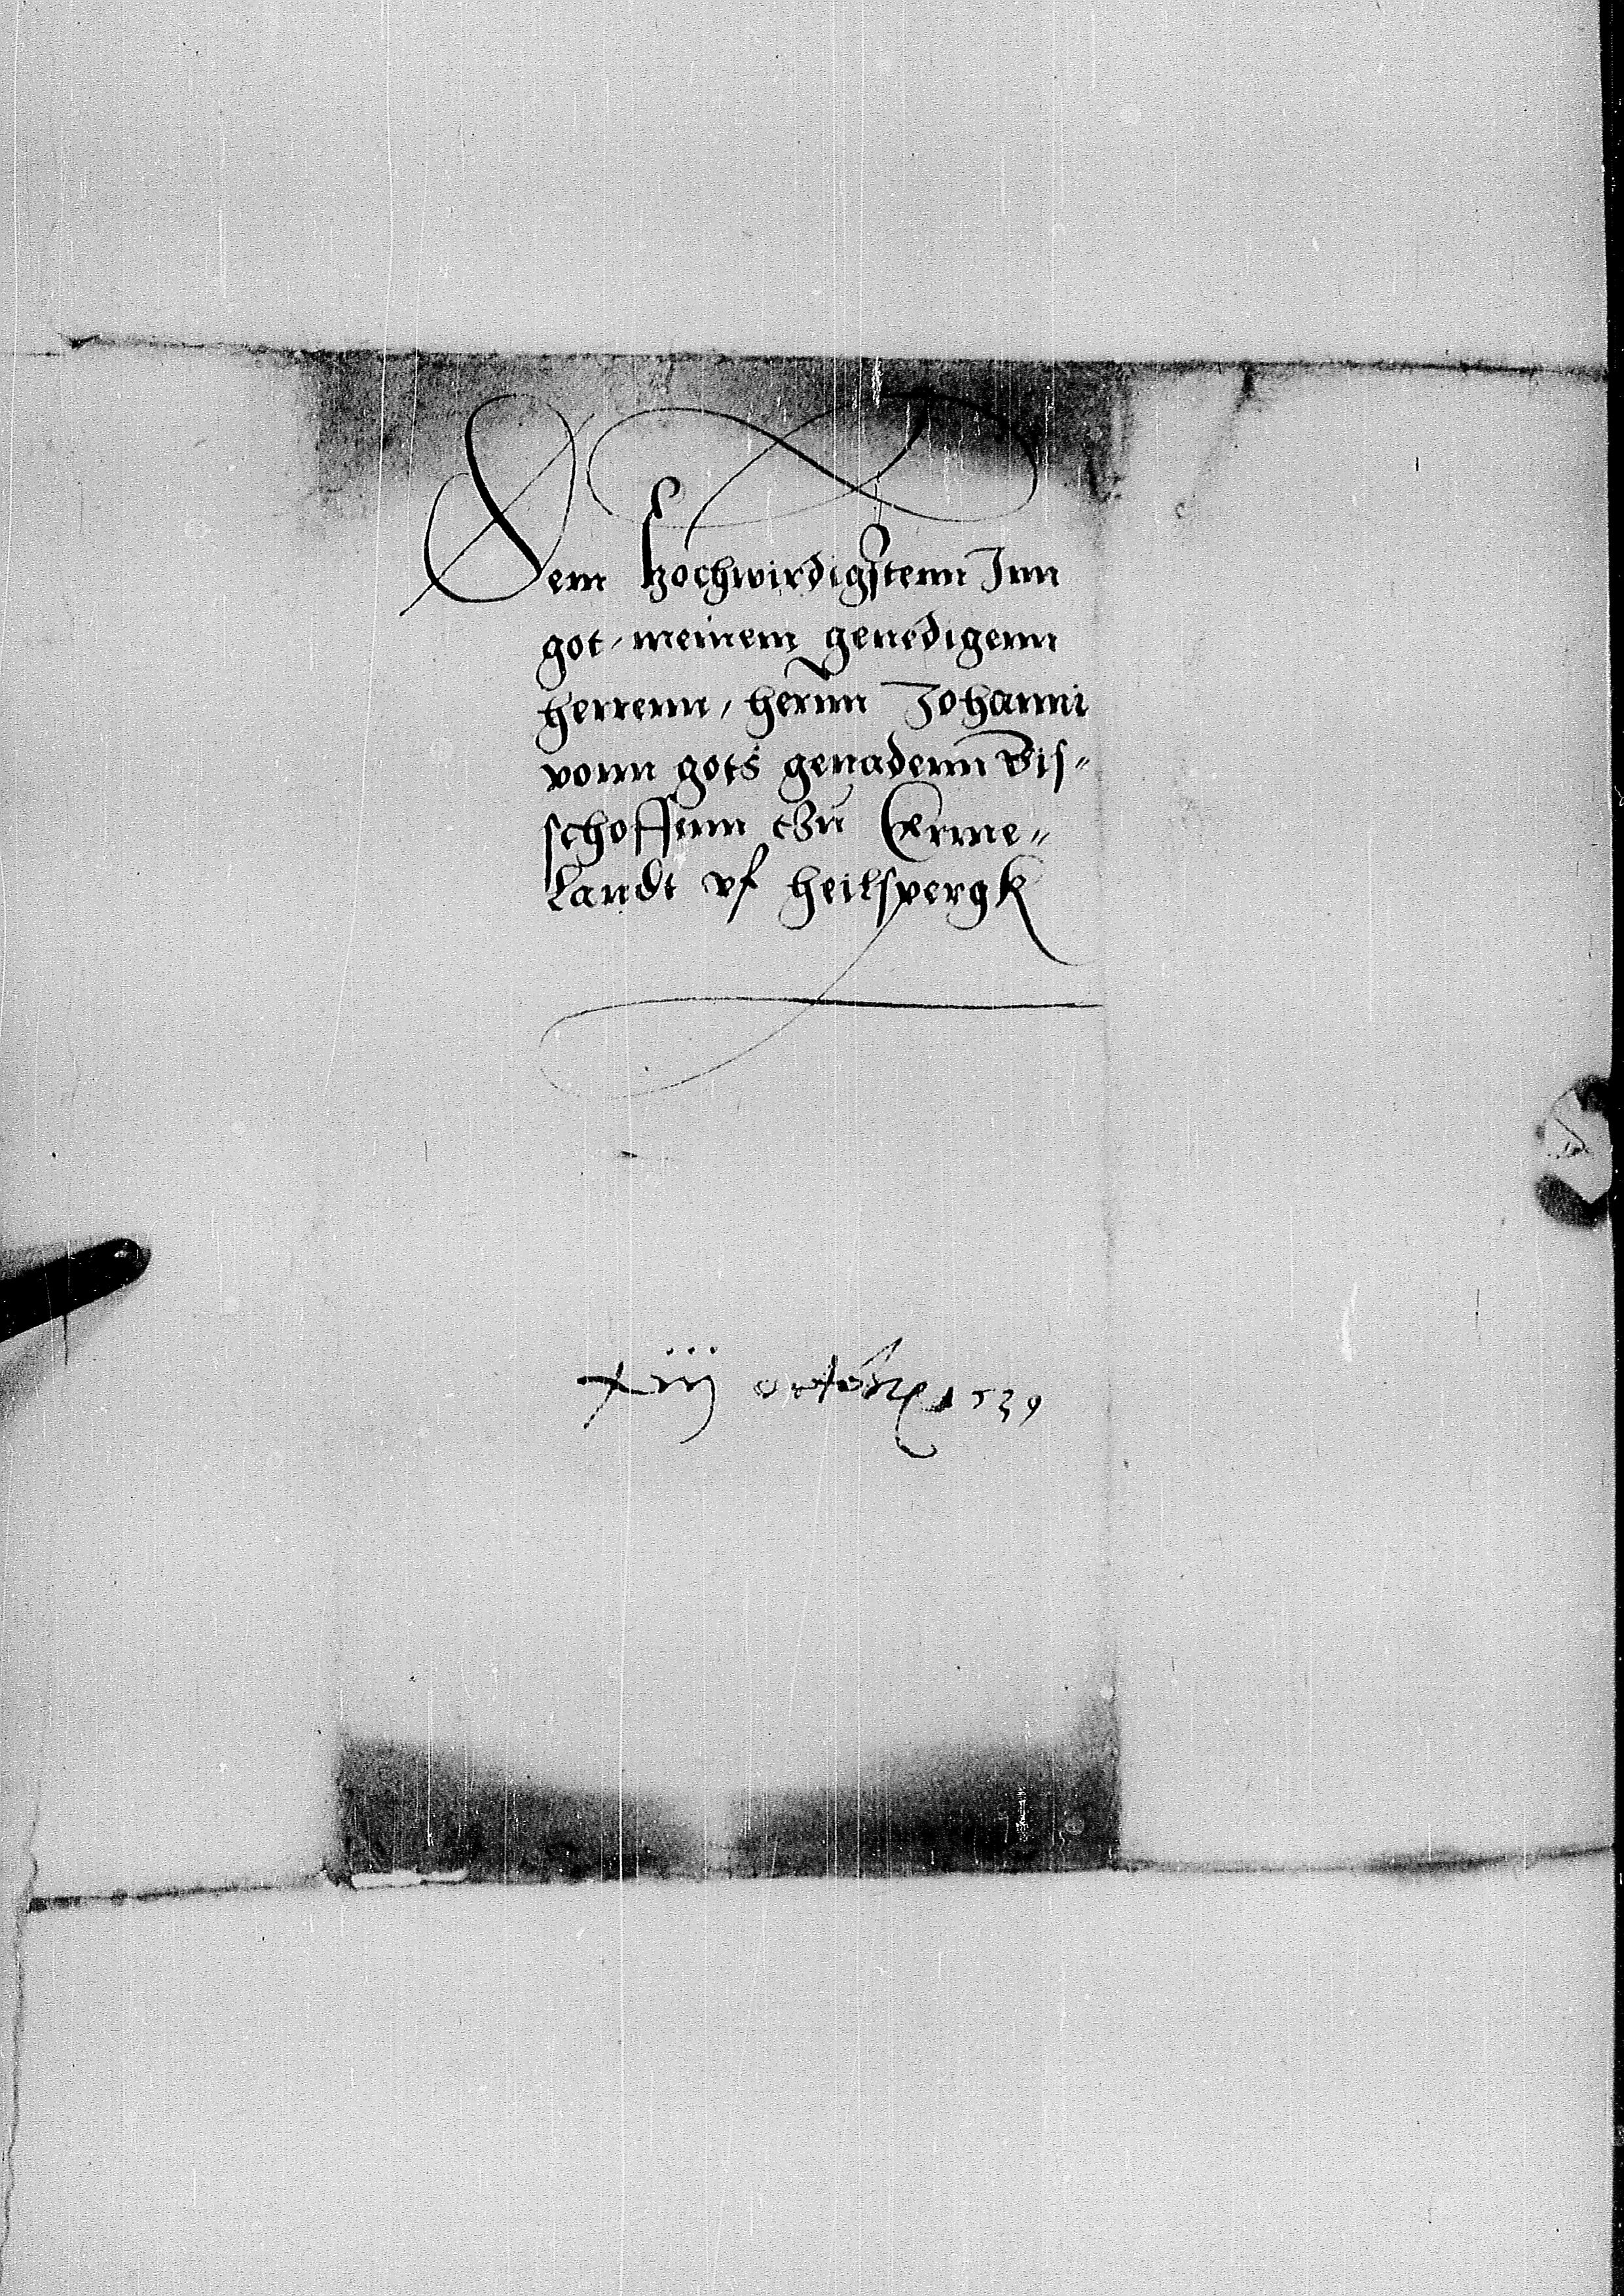 Dem hochwirdigstenn Inn
got, meinem genedigenn
herrenn, hernn Johanni
vonn gots genadenn Bis-
schoffenn tzu Erme-
landt vf heilspergk
xiij octobris 1539